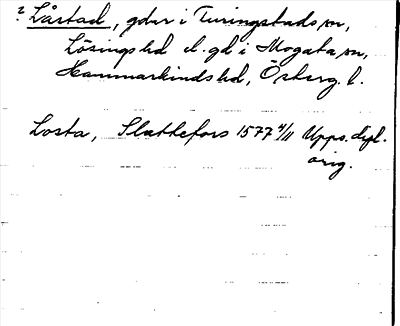 ? Låstad, gdar i Turingstads sn,
Lösings hd el. gd i Mogata sn,
Hammarkinds hd, Österg. l.
Losta, Slattefors 1577 4/11 Upps. dipl.
orig.